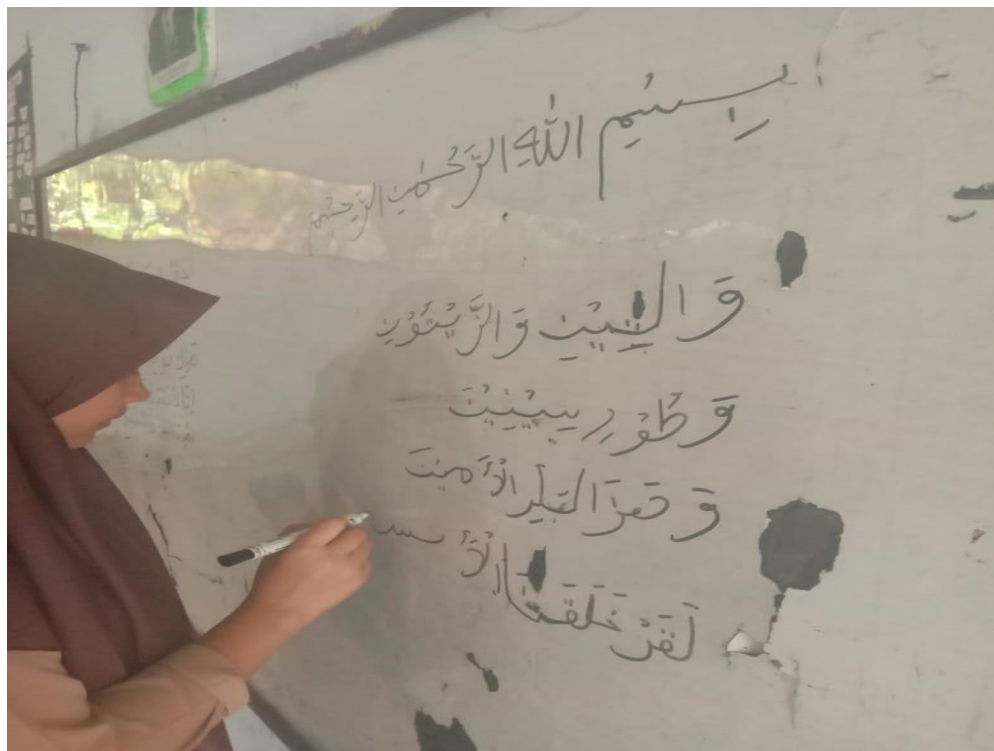 بِسْمِ اللهِ الرَّحْمٰنِ الرَّحِيْمِ
وَالتِّيْنِ وَالزَّيْتُوْنِ
وَطُوْرِ سِيْنِيْنَ
وَهٰذَا الْبَلَدِ الْأَمِيْنَ
لَقَدْ خَلَقْنَا الْأ نس